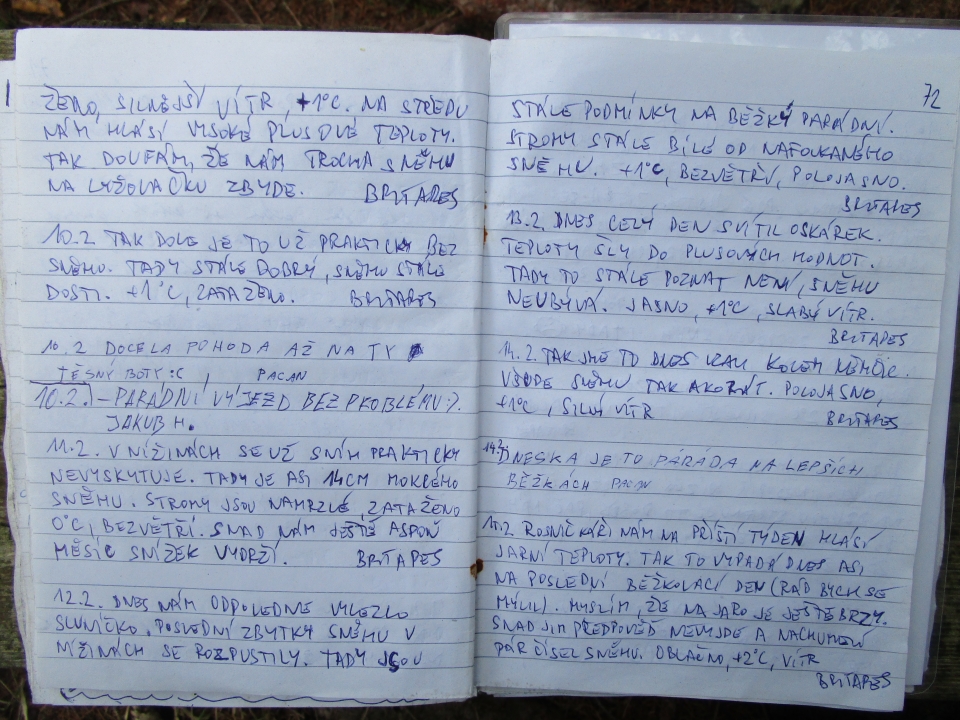 ŽENO, SILNĚJŠÍ VÍTR, +1°C. NA STŘEDU
NÁM HLÁSÍ VYSOKÉ PLUSOVÉ TEPLOTY.
TAK DOUFÁM, ŽE NÁM TROCHA SNĚHU
NA LYŽOVAČKU ZBYDE. BRŤAPES
10.2. TAK DOLE JE TO UŽ PRAKTICKY BEZ
SNĚHU. TADY STÁLE DOBRÝ, SNĚHU STÁLE
DOSTI. +1°C, ZATAŽENO. BRŤAPES
10.2 DOCELA POHODA AŽ NA TY
TĚSNÝ BOTY :C PACAN
10.2. - PARÁDNÍ VÝJEZD BEZ PROBLÉMU :).
JAKUB H.
11.2. V NÍŽINÁCH SE UŽ SNÍH PRAKTICKY
NEVYSKYTUJE. TADY JE ASI 14CM MOKRÉHO
SNĚHU. STROMY JSOU NAMRZLÉ, ZATAŽENO
0°C, BEZVĚTŘÍ. SNAD NÁM JEŠTĚ ASPOŇ
MĚSÍC SNÍŽEK VYDRŽÍ. BRŤAPES
12.2. DNES NÁM ODPOLEDNE VYLEZLO
SLUNÍČKO. POSLEDNÍ ZBYTKY SNĚHU V
NÍŽINÁCH SE ROZPUSTILY. TADY JSOU
72
STÁLE PODMÍNKY NA BĚŽKY PARÁDNÍ.
STROMY STÁLE BÍLÉ OD NAFOUKANÉHO
SNĚHU. +1°C, BEZVĚTŘÍ, POLOJASNO.
BRŤAPES
13.2. DNES CELÝ DEN SVÍTIL OSKÁREK.
TEPLOTY ŠLY DO PLUSOVÝCH HODNOT.
TADY TO STÁLE POZNAT NENÍ, SNĚHU
NEUBÝVÁ. JASNO, +1°C, SLABÝ VÍTR.
BRŤAPES
14.2. TAK JSME TO DNES VZALI KOLEM
VŠUDE SNĚHU TAK AKORÁT. POLOJASNO,
+1°C, SILNÝ VÍTR BRŤAPES
14.2. DNESKA JE TO PÁRÁDA NA LEPŠÍCH
BĚŽKÁCH PACAN
15.2. ROSNIČKÁŘI NÁM NA PŘÍŠTÍ TÝDEN HLÁSÍ
JARNÍ TEPLOTY. TAK TO VYPADÁ DNES ASI
NA POSLEDNÍ BĚŽKOVACÍ DEN (RÁD BYCH SE
MÝLIL). MYSLÍM, ŽE NA JARO JE JEŠTĚ BRZY.
SNAD JIM PŘEDPOVĚĎ NEVYJDE A NACHUMELÍ
PÁR ČÍSEL SNĚHU. OBLAČNO, +2°C, VÍTR
BRŤAPES